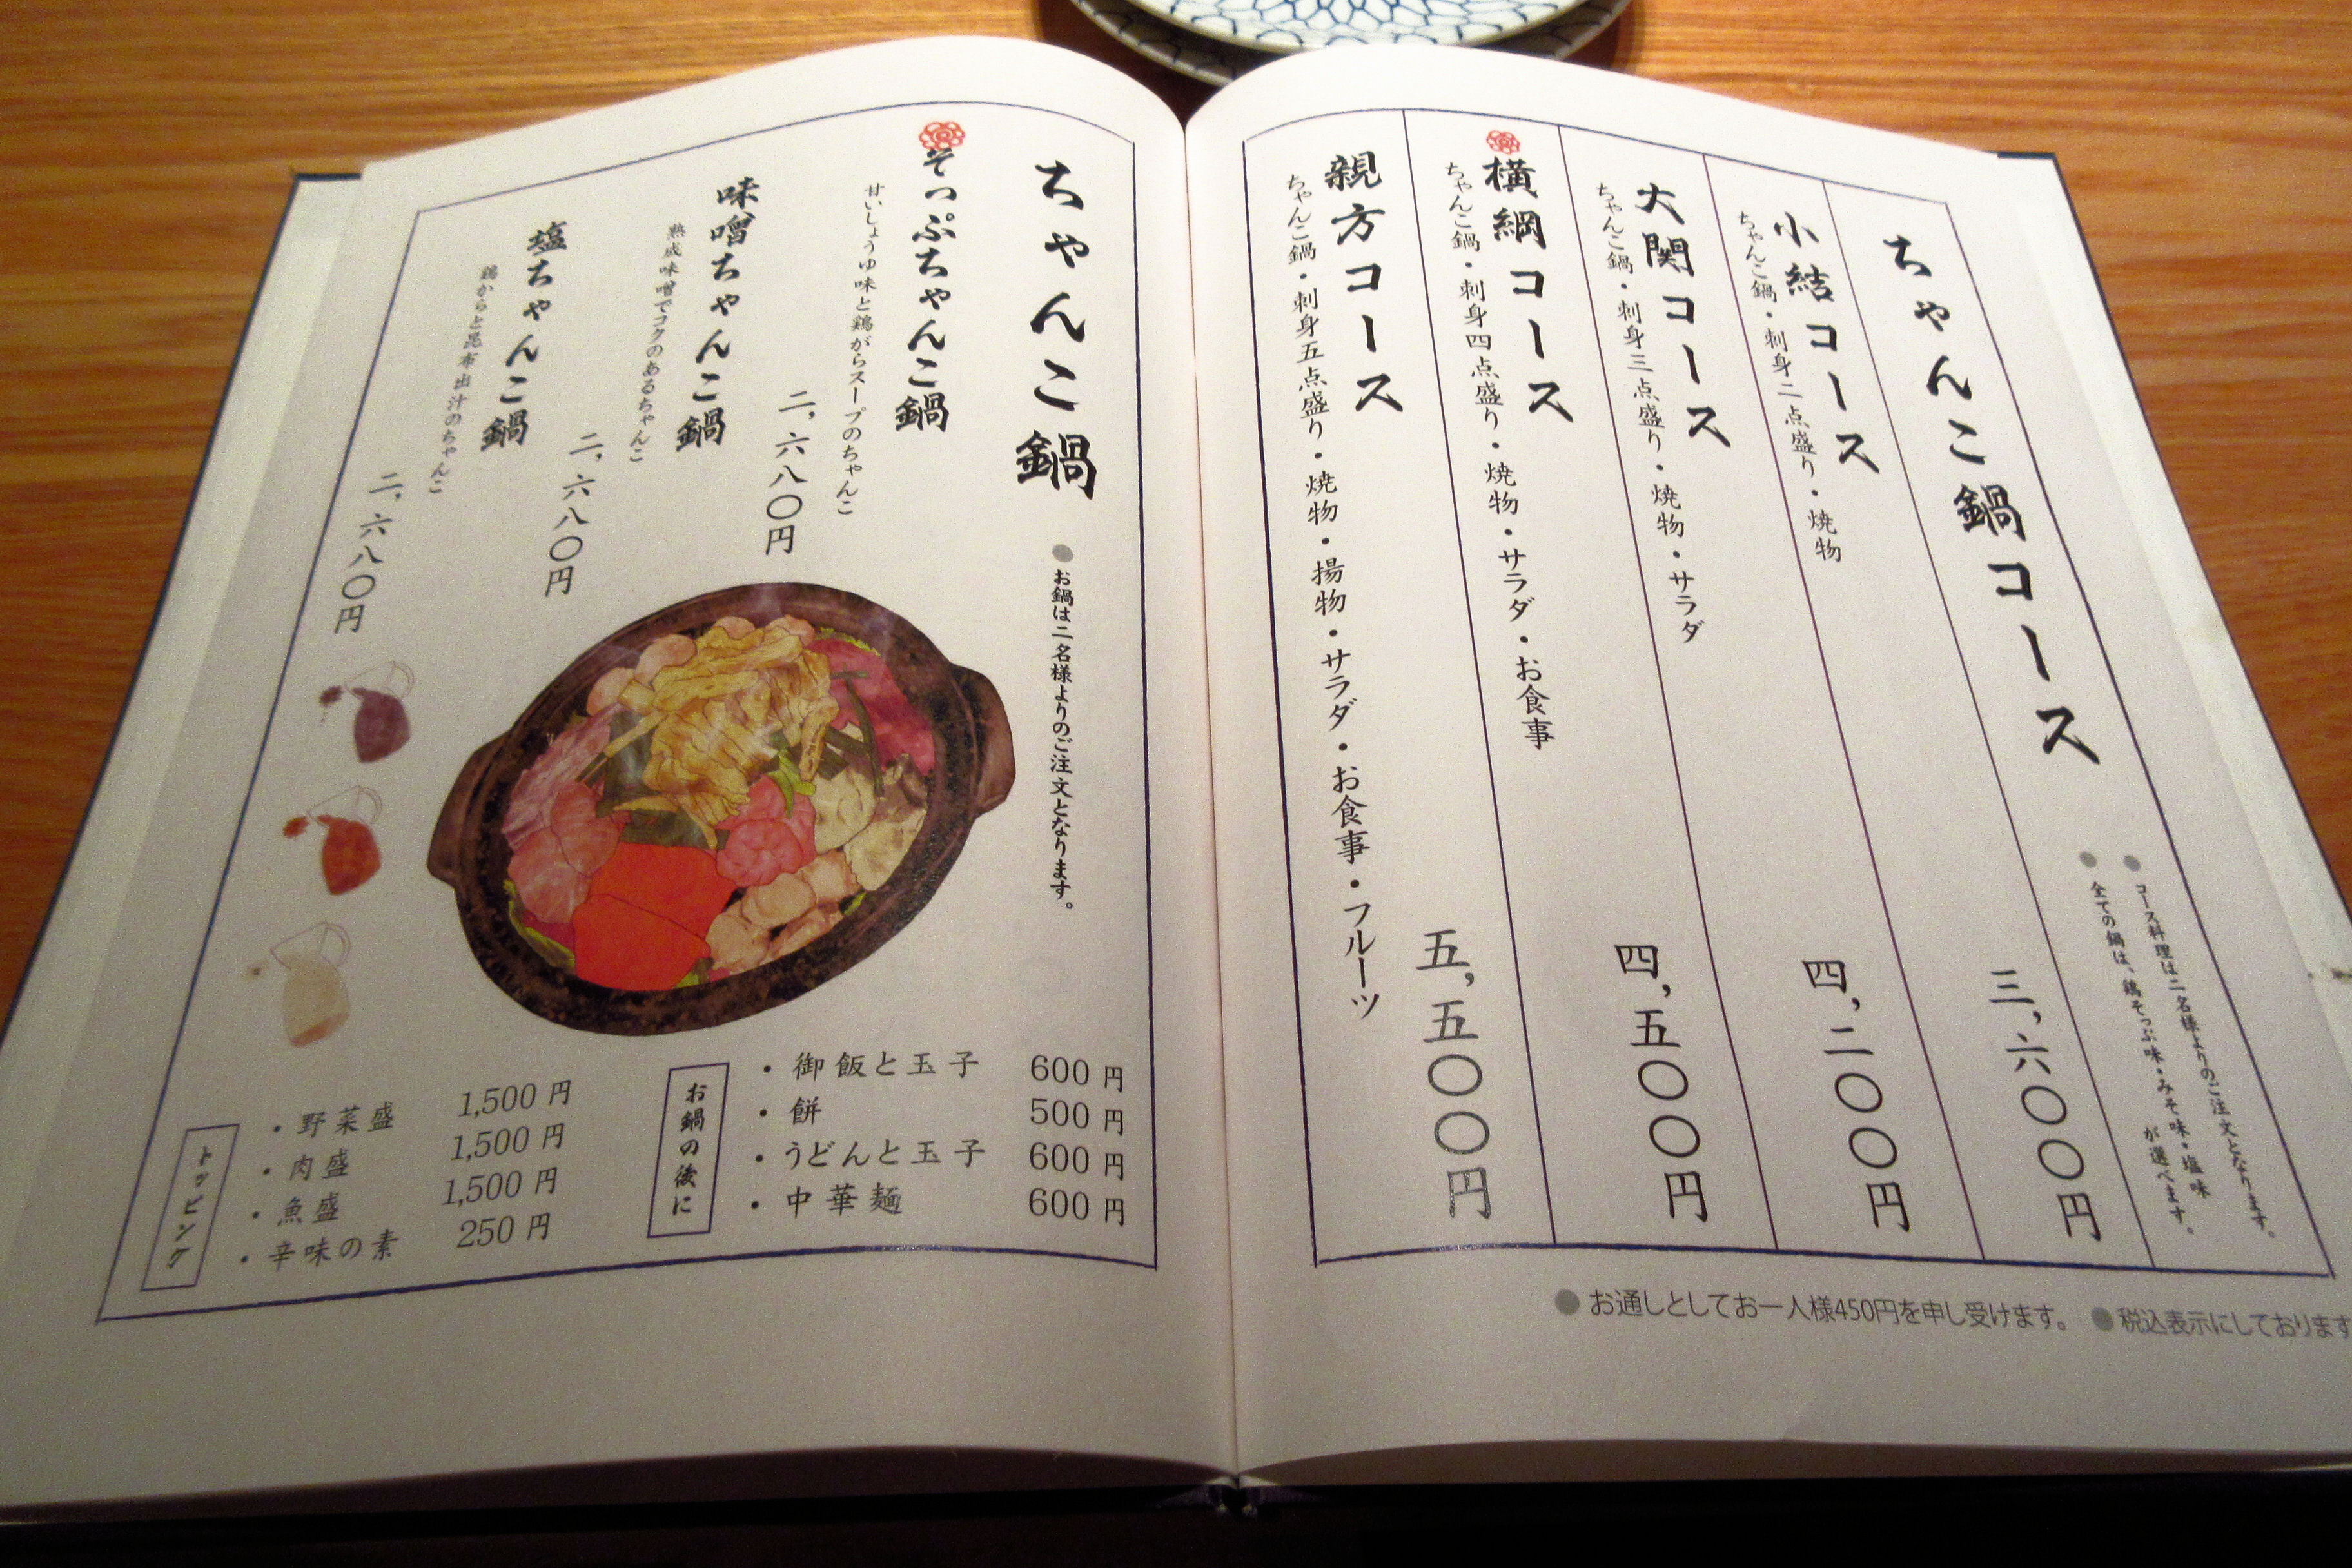 ちゃんこ鍋コース
●コース料理は二名様よりのご注文となります。
●全ての鍋は、鶏そっぷ味・みそ味・塩味
が選べます。
小結コース
ちゃんこ鍋・刺身二点盛り・焼物
三,六〇〇円
大関コース
ちゃんこ鍋・刺身三点盛り・焼物・サラダ
四,二〇〇円
横綱コース
ちゃんこ鍋・刺身四点盛り・焼物・サラダ・お食事
四,五〇〇円
親方コース
ちゃんこ鍋・刺身五点盛り・焼物・揚物・サラダ・お食事・フルーツ
五,五〇〇円
●お通しとしてお一人様450円を申し受けます。 ●税込表示にしております
ちゃんこ鍋
●お鍋は二名様よりのご注文となります。
そっぷちゃんこ鍋
甘いしょうゆ味と鶏がらスープのちゃんこ
二,六八〇円
味噌ちゃんこ鍋
熟成味噌でコクのあるちゃんこ
二,六八〇円
塩ちゃんこ鍋
鶏からと昆布出汁のちゃんこ
二,六八〇円
お鍋の後に
・御飯と玉子 600円
・餅 500円
・うどんと玉子 600円
・中華麺 600円
トッピング
・野菜盛 1,500円
・肉盛 1,500円
・魚盛 1,500円
・辛味の素 250円